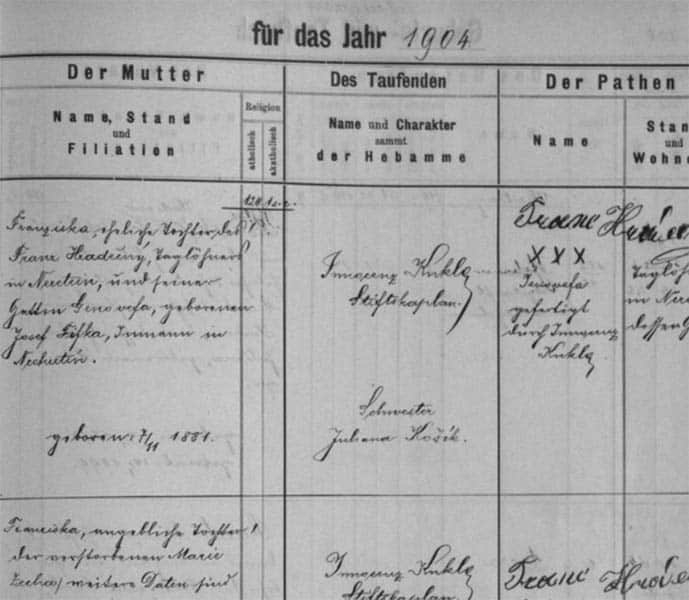 für das Jahr 1904
Der Mutter
Des Taufenden
Der Pathen
Name, Stand
und
Filiation
Religion
katholisch
akatholisch
Name und Charakter
sammt
der Hebamme
Name
Stan
und
Wohn
Franziska, eheliche Tochter des
Franz Hadčiny, Taglöhners
in Nečtetin, und seiner
Gattin Genovefa, geborenen
Josef Fifka, Inmann in
Nečtetin.
geboren: 7/11 1881.
Innozenz Kukla
Stiftskaplan.
Schwester
Juliana Košik.
Franc
XXX
Genovefa
gefertigt
durch Innozenz
Kukla
Taglöh
in
dessen G
Franciska, angebliche Tochter
der verstorbenen Marie
weitere Daten sind
Innozenz Kukla
Stiftskaplan.
Franc